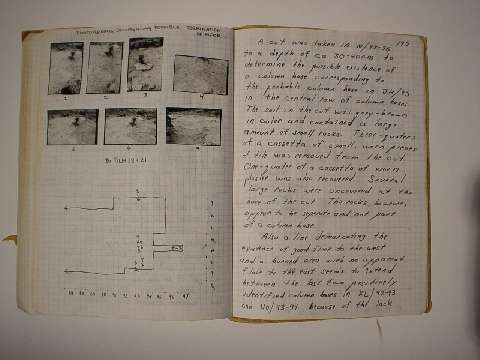 PHOTOGRAPHS POSSIBLE TERMINATION
OF FLOOR
1 2 3 4
193
A cut was taken in
to a depth of ca 30-40cm to
determine the possible existence of
a column base corresponding to
the probable column base in
in the central row of column bases.
The soil in the cut was grey-brown
in color and contained a large
amount of small rocks. Three-quarters
of a cassetta of small, worn pieces
of tile was removed from the cut.
One-quarter of a cassetta of worn
plaster was also recovered. Several
large rocks were uncovered at the
base of the cut. The rocks, however,
appear to be separate and not part
of a column base.
Also a line demarcating the
existence of good floor to the west
and a burned area with no apparent
floor to the east seems to extend
between the last two positively
identified column bases in
because of the lack